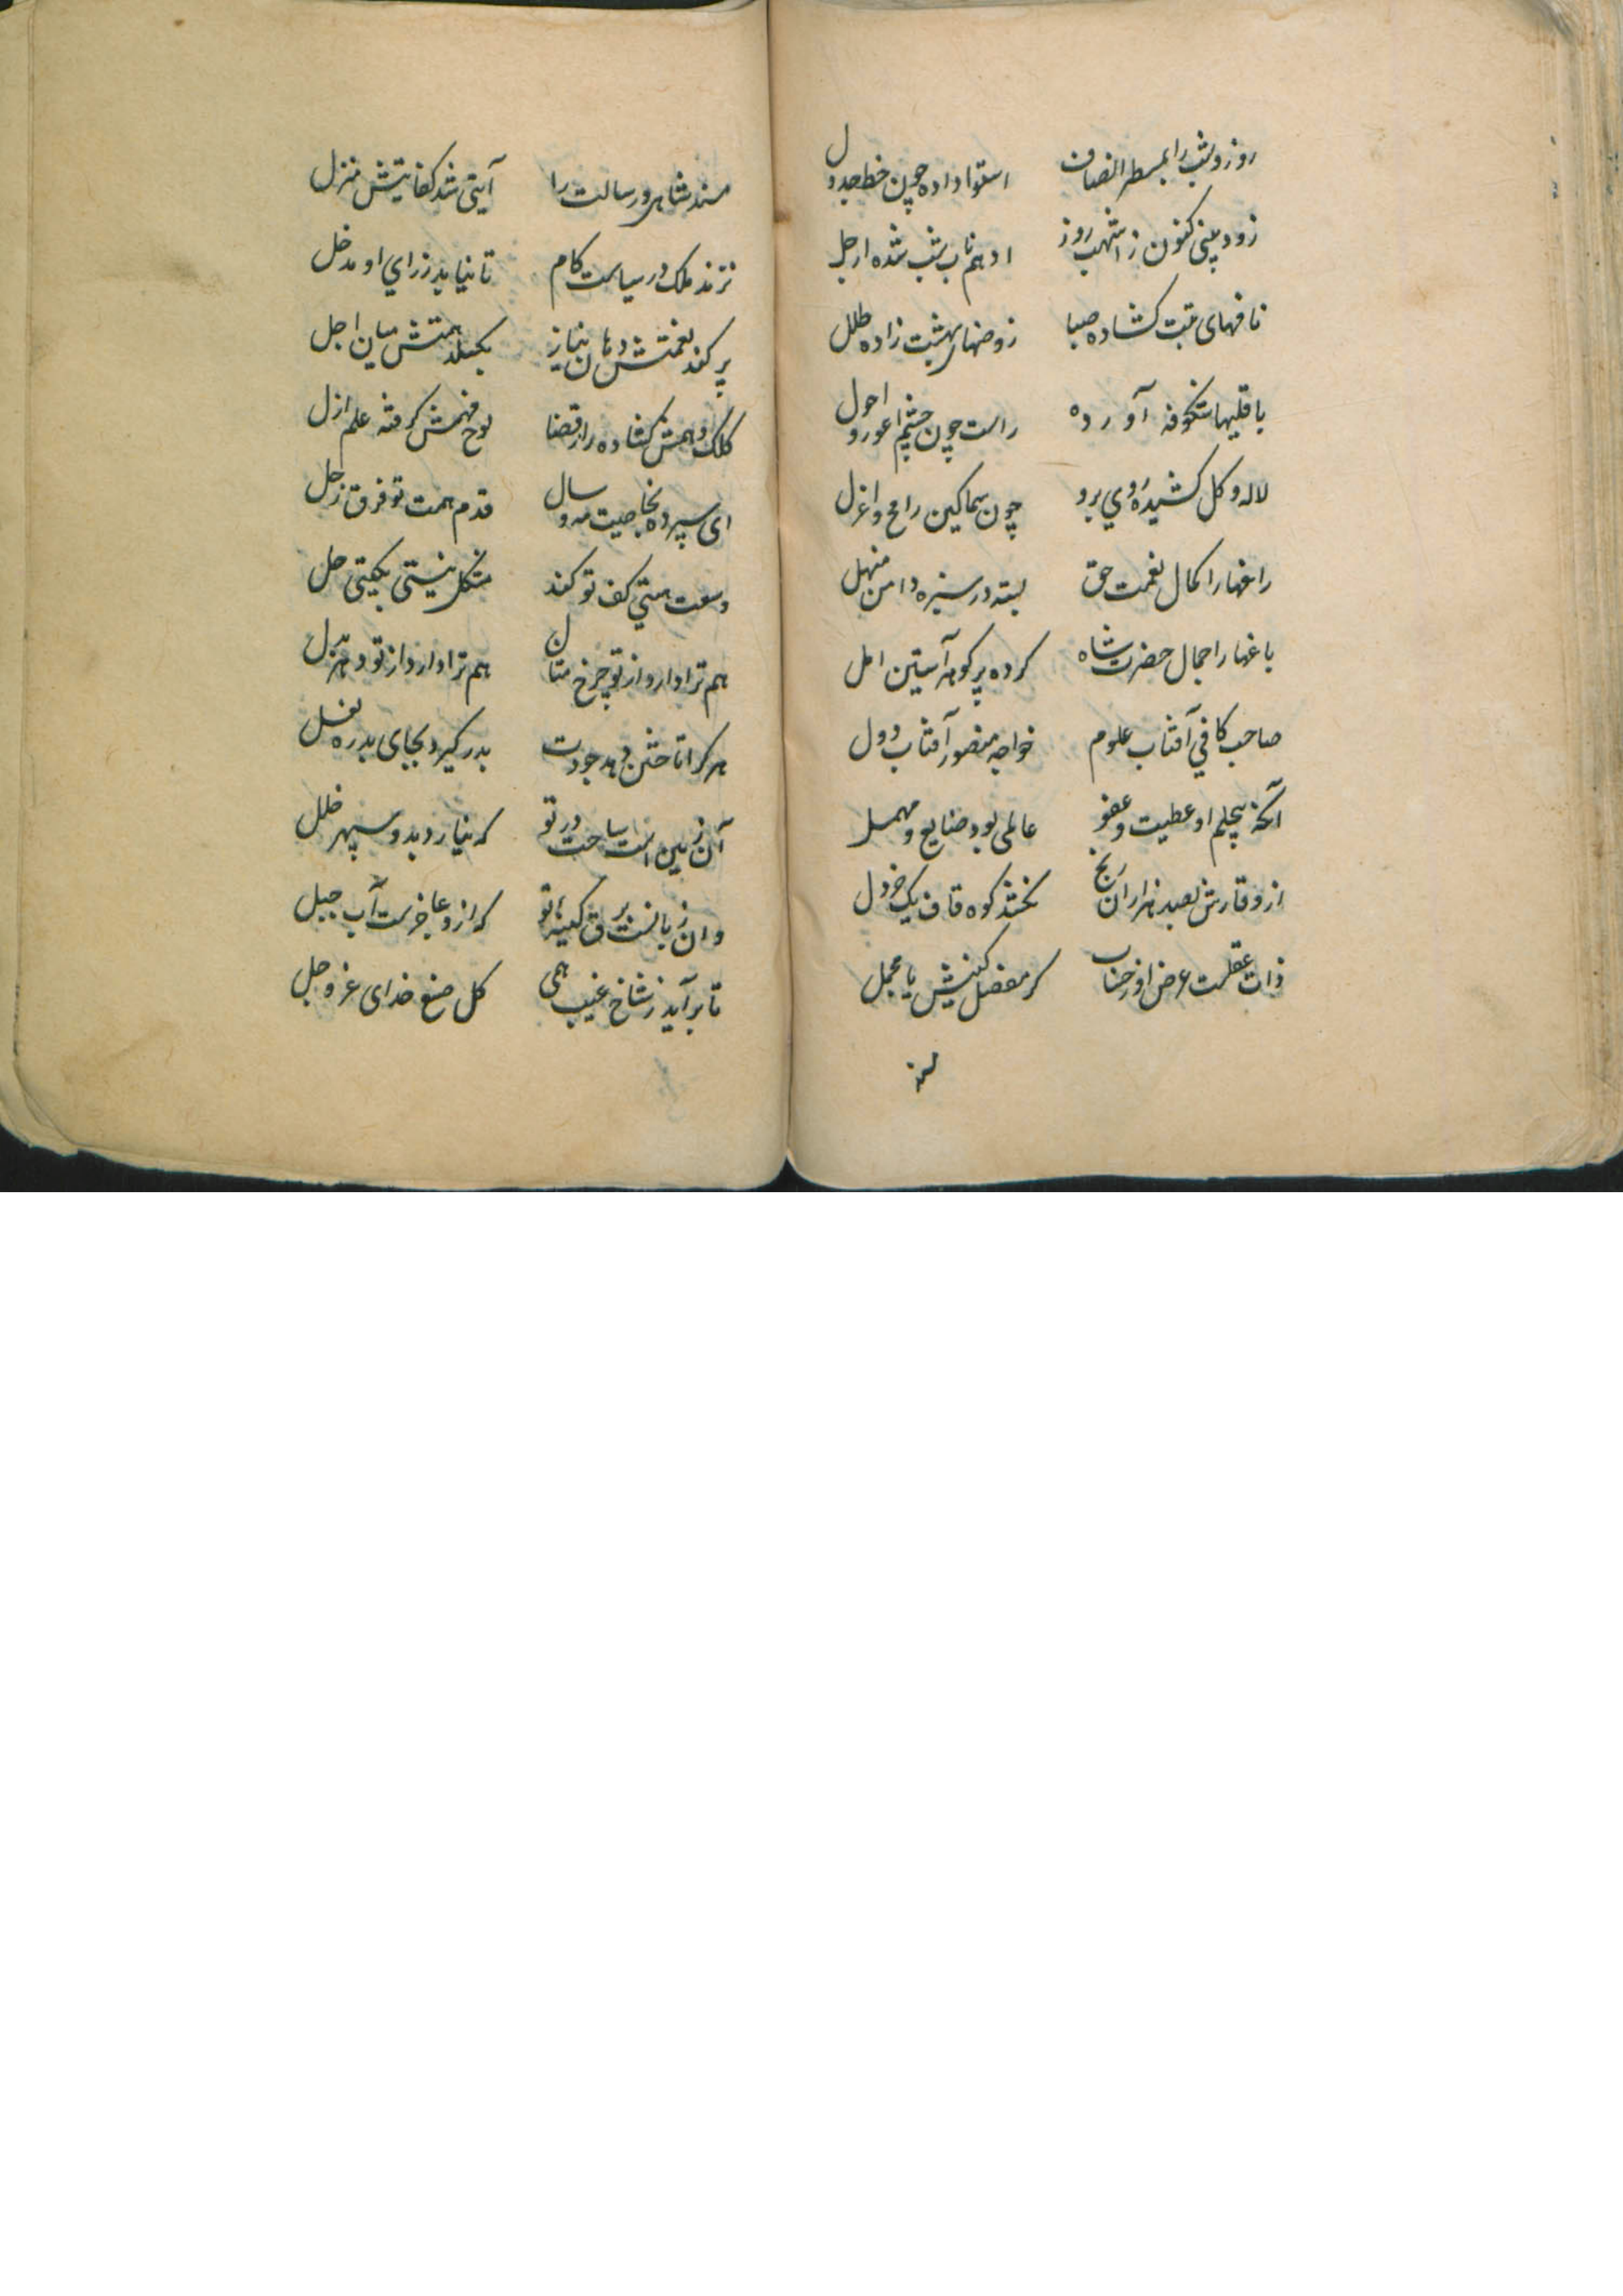 روز و شب را بمسطر انصاف استوا داده چون خط جدول
زود بینی کنون ز اشهب روز ادهم ناب شب شده ارجل
نافهای تبت کشاده صبا روضهای بهشت زاده طلل
باقلیها شکوفه آورده راست چون چشم اعور و احول
لاله و کل کشیده روی برو چون سماکین رامح و اعزل
راغها را کمال نعمت حق بسته در سبزه دامن منهل
باغها را جمال حضرت شاه کرده پر کوهر آستین امل
صاحب کافی آفتاب علوم خواجه منصور آفتاب دول
آنکه بیحلم او عطیت و عفو عالمی بود ضایع و مهمل
از وقارش بصد هزاران رنج نختند کوه قاف یک خردل
ذات عقلست عرض او ز حساب کر مفصل کنیش یا مجمل
مسند شاهی و رسالت را آیتی شد کفایتش منزل
نزند ملک در سیاست کام تا نیابد ز رای او مدخل
پر کند نعمتش دهان نیاز بکسلد همتش میان اجل
کلک وهمش کشاده راز قضا لوح فهمش کرفته علم ازل
ای سپرده بخاصیت مه و سال قدم همت تو فرق زحل
وسعت هستی کف تو کند مشکل نیستی بکیتی حل
هم ترا دارد از تو چرخ متال هم ترا دارد از تو دهر بدل
هر کرا تاختن دهد جودت بدر کیرد بجای بدره بغل
آن زمین است ساحت در تو که نیارد بدو سپهر خلل
وان زبانست برق کینه تو که ازو عاجزست آب جبل
تا برآید ز شاخ غیب همی کل صنع خدای عز و جل